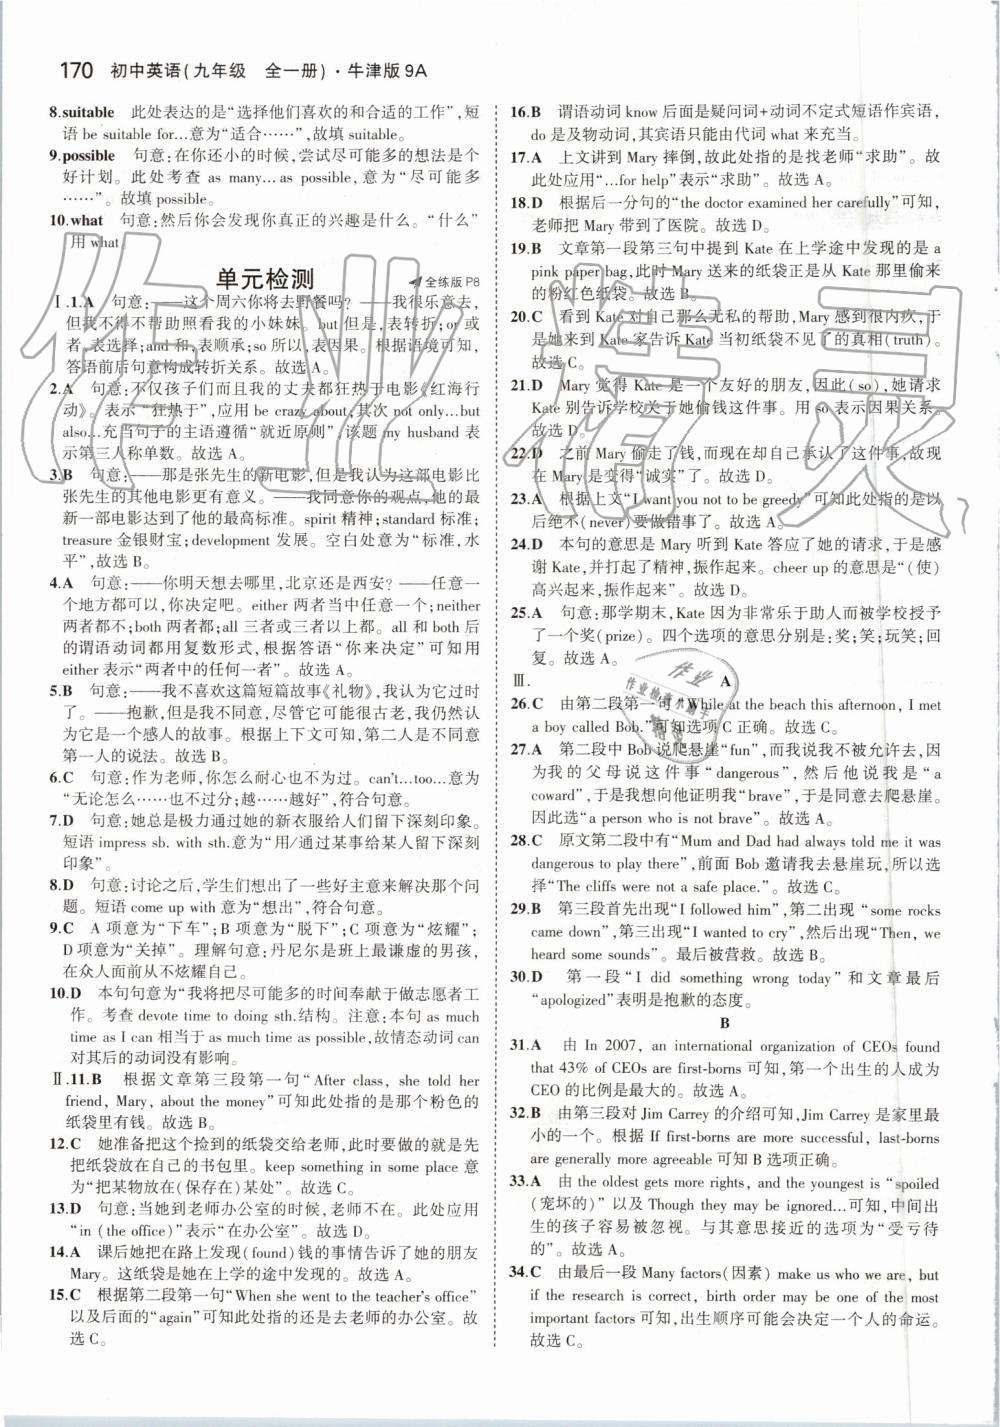 170 初中英语(九年级 全一册)·牛津版9A
8.suitable 此处表达的是“选择他们喜欢的和合适的工作”,短
语 be suitable for…意为“适合……”,故填 suitable。
9.possible 句意:在你还小的时候,尝试尽可能多的想法是个
好计划。此处考查 as many…as possible,意为“尽可能多
……”。故填 possible。
10.what 句意:然后你会发现你真正的兴趣是什么。“什么”
用 what
单元检测 全练版 P8
Ⅰ.1.A 句意:——这个周六你将去野餐吗?——我很乐意去,
但我不得不帮助照看我的小妹妹。but 但是,表转折;or 或
者,表选择;and 和,表顺承;so 所以,表因果。根据语境可知,
答语前后句意构成转折关系。故选 A。
2.A 句意:不仅孩子们而且我的丈夫都狂热于电影《红海行
动》。表示“狂热于”,应用 be crazy about;其次 not only…but
also…充当句子的主语遵循“就近原则”,该题 my husband 表
示第三人称单数。故选 A。
3.B 句意:——那是张先生的新电影,但是我认为这部电影比
张先生的其他电影更有意义。——我同意你的观点,他的最
新一部电影达到了他的最高标准。spirit 精神;standard 标准;
treasure 金银财宝;development 发展。空白处意为“标准,水
平”,故选 B。
4.A 句意:——你明天想去哪里,北京还是西安?——任意一
个地方都可以,你决定吧。either 两者当中任意一个;neither
两者都不;both 两者都;all 三者或三者以上都。all 和 both 后
的谓语动词都用复数形式,根据答语“你来决定”可知用
either 表示“两者中的任何一者”。故选 A。
5.B 句意:——我不喜欢这篇短篇故事《礼物》,它已经过时
了。——抱歉,但我不同意,尽管它可能很古老,我仍然认
为它是一个感人的故事。根据上下文可知,第二人是不同意
第一人的说法。故选 B。
6.C 句意:作为老师,你怎么耐心也不为过。can't…too…意为
“无论怎么……也不过分;越……越好”,符合句意。
7.D 句意:她总是极力通过她的新衣服给人们留下深刻印象。
短语 impress sb. with sth.意为“用/通过某事给某人留下深刻
印象”。
8.D 句意:讨论之后,学生们想出了一些好主意来解决那个问
题。短语 come up with 意为“想出”,符合句意。
9.C A 项意为“下车”;B 项意为“脱下”;C 项意为“炫耀”;
D 项意为“关掉”。理解句意:丹尼尔是班上最谦虚的男孩,
在众人面前从不炫耀自己。
10.D 本句句意为“我将把尽可能多的时间奉献于做志愿者工
作。考查 devote time to doing sth.结构。注意:本句 as much
time as I can 相当于 as much as possible,故情态动词 can
对其后的动词没有影响。
Ⅱ.11.B 根据文章第三段第一句“After class, she told her
friend, Mary, about the money”可知此处指的是那个粉色的
纸袋里有钱。故选 B。
12.C 她准备把这个捡到的纸袋交给老师,此时要做的就是先
把纸袋放在自己的书包里。keep something in some place 意
为“把某物放在(保存在)某处”。故选 C。
13.D 句意:当她到老师办公室的时候,老师不在。此处应用
“in (the office)”表示“在办公室”。故选 D。
14.A 课后她把在路上发现(found)钱的事情告诉了她的朋友
Mary。这纸袋是她在上学的途中发现的。故选 A。
15.C 根据第二段第一句“When she went to the teacher's office”
以及后面的“again”可知此处指的还是去老师的办公室。故
选 C。
16.B 谓语动词 know 后面是疑问词+动词不定式短语作宾语,
do 是及物动词,其宾语只能由代词 what 来充当。
17.A 上文讲到 Mary 摔倒,故此处指的是找老师“求助”。故
此处应用“…for help”表示“求助”。故选 A。
18.D 根据后一分句的“the doctor examined her carefully”可知,
老师把 Mary 带到了医院。故选 D。
19.B 文章第一段第三句中提到 Kate 在上学途中发现的是 a
pink paper bag,此时 Mary 送来的纸袋正是从 Kate 那里偷来
的粉红色纸袋。故选 B。
20.C 看到 Kate 对自己那么无私的帮助,Mary 感到很内疚,于
是来到 Kate 家告诉 Kate 当初纸袋不见了的真相(truth)。
故选 C。
21.D Mary 觉得 Kate 是一个友好的朋友,因此(so),她请求
Kate 别告诉学校关于她偷钱这件事。用 so 表示因果关系。
故选 D。
22.D 之前 Mary 偷走了钱,而现在却自己承认了这件事,故现
在 Mary 是变得“诚实”了。故选 D。
23.A 根据上文“I want you not to be greedy”可知此处指的是以
后绝不(never)要做错事了。故选 A。
24.D 本句的意思是 Mary 听到 Kate 答应了她的请求,于是感
谢 Kate,并打起了精神,振作起来。cheer up 的意思是“(使)
高兴起来,振作起来”。故选 D。
25.A 句意:那学期末,Kate 因为非常乐于助人而被学校授予
了一个奖(prize)。四个选项的意思分别是:奖;笑;玩笑;回
复。故选 A。
Ⅲ. A
26.C 由第二段第一句“While at the beach this afternoon, I met
a boy called Bob.”可知选项 C 正确。故选 C。
27.A 第二段中 Bob 说爬悬崖“fun”,而我说我不被允许去,因
为我的父母说这件事“dangerous”,然后他说我是“a
coward”,于是我想向他证明我“brave”,于是同意去爬悬崖。
因此选“a person who is not brave”。故选 A。
28.C 原文第二段中有“Mum and Dad had always told me it was
dangerous to play there”,前面 Bob 邀请我去悬崖玩,所以选
择“The cliffs were not a safe place.”。故选 C。
29.B 第三段首先出现“I followed him”,第二出现“some rocks
came down”,第三出现“I wanted to cry”,然后出现“Then, we
heard someone shouting”。最后被营救。故选 B。
30.D 第一段“I did something wrong today”和文章最后
“apologized”表明是抱歉的态度。
B
31.A 由 In 2007, an international organization of CEOs found
that 43% of CEOs are first-borns 可知,第一个出生的人成为
CEO 的比例是最大的。故选 A。
32.B 由第三段对 Jim Carrey 的介绍可知,Jim Carrey 是家里最
小的一个。根据 If first-borns are more successful, last-borns
are generally more agreeable 可知 B 选项正确。
33.A 由 the oldest gets more rights, and the youngest is “spoiled
(宠坏的)”以及 Though they may be ignored…可知,中间出
生的孩子容易被忽视。与其意思接近的选项为“受亏待
的”。故选 A。
34.C 由最后一段 Many factors(因素) make us who we are, but
if the research is correct, birth order may be one of the most
important factors 可知,出生顺序可能会决定一个人的命运。
故选 C。
作业精灵
作业
作业检查小助手
精灵